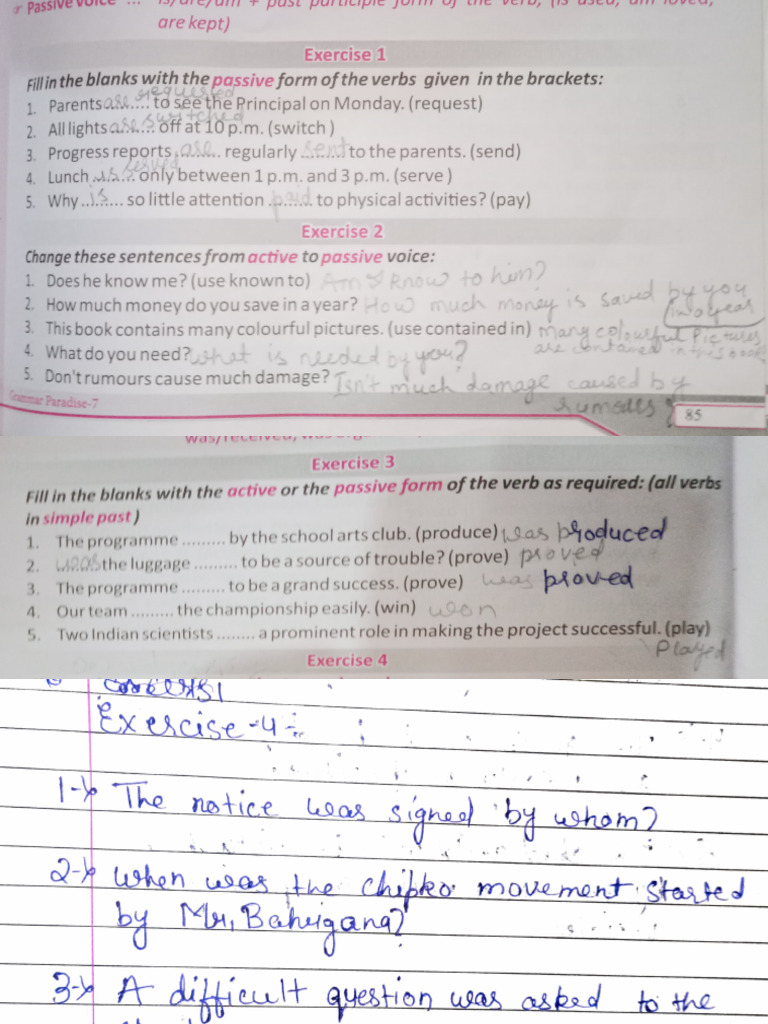 Passive voice ... is/are/am + past participle form of the verb, (is used, am loved,
are kept)
Exercise 1
Fill in the blanks with the passive form of the verbs given in the brackets:
1. Parents are requested to see the Principal on Monday. (request)
2. All lights are switched off at 10 p.m. (switch )
3. Progress reports are regularly sent to the parents. (send)
4. Lunch is served only between 1 p.m. and 3 p.m. (serve )
5. Why is so little attention paid to physical activities? (pay)
Exercise 2
Change these sentences from active to passive voice:
1. Does he know me? (use known to) Am I know to him?
2. How much money do you save in a year? How much money is saved by you in a year
3. This book contains many colourful pictures. (use contained in) many colourful pictures are contained in this book
4. What do you need? what is needed by you?
5. Don't rumours cause much damage? Isn't much damage caused by rumours?
Grammar Paradise-7
85
Exercise 3
Fill in the blanks with the active or the passive form of the verb as required: (all verbs
in simple past )
1. The programme ......... by the school arts club. (produce) was produced
2. was the luggage ......... to be a source of trouble? (prove) proved
3. The programme ......... to be a grand success. (prove) was proved
4. Our team ......... the championship easily. (win) won
5. Two Indian scientists ........ a prominent role in making the project successful. (play)
Played
Exercise 4
Exercise-4
1 The notice was signed by whom?
2 When was the chipko movement started
by Mr,
3 A difficult question was asked to the